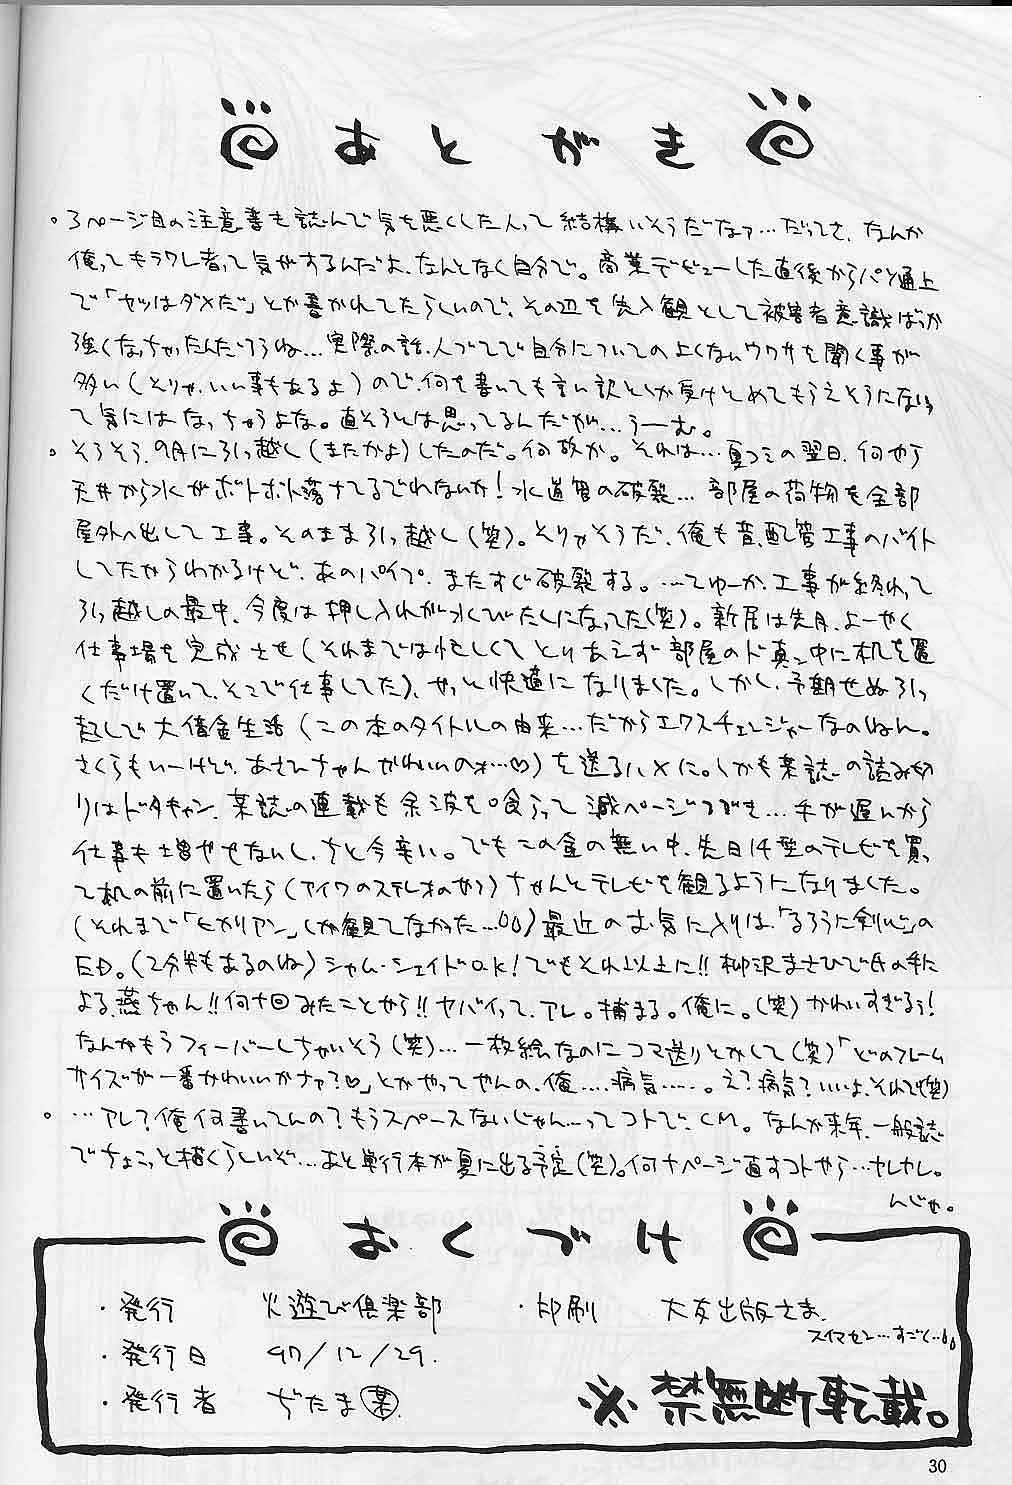 あとがき
。3ページ目の注意書も読んで気を悪くした人って結構いそうだなァ…だってさ、なんか
俺ってキラワレ者って気がするんだよ、なんとなく自分で。商業デビューした直後からパソ通上
で「ヤツはダメだ」とか書かれてたらしいので、その辺を先入観として被害者意識ばっか
強くなっちゃったんだろうね…実際の話、人づてで自分についての上くないウワサを聞く事が
多い(そりゃ、いい事もあるよ)ので、何を書いても言い訳としか受けとめてもらえそうにない
て気にはなっちゃうよな。直そうとは思ってるんだが…うーむ。
。そうそう、9月に引っ越し(またかよ)したのだ。何故か。それは…夏コミの翌日、何やら
天井から水がボトボト落ちてるでわないか!水道管の破裂…部屋の荷物を全部
屋外へ出して工事。そのまま引っ越し(笑)。そりゃそうだ、俺も昔、配管工事のバイト
してたからわかるけど、あのパイプ、またすぐ破裂する。…てゆーか、工事が終わって
引っ越しの最中、今度は押し入れが水びたしになってた(笑)。新居は先月、よーやく
仕事場を完成させ(それまでは忙しくてとりあえず部屋のド真ン中に机を置
くだけ置いて、そこで仕事してた)、やっと快適になりました。しかし、予期せぬ引っ
越しで大借金生活(この本のタイトルの由来…だからエクスチェンジャーなのねん。
さくらもいーけど、あさひちゃんかわいいのォ…♡)を送るハメに。しかも某誌の読み切
りはドタキャン、某誌の連載も余波を喰らって減ページつづき…手が遅いから
仕事も増やせないし、ちと今辛い。でもこの金の無い中、先日14型のテレビを買っ
て机の前に置いたら(アイワのステレオのやつ)ちゃんとテレビを観るようになりました。
(それまで「ヒカリアン」しか観てなかった…)最近のお気に入りは「るろうに剣心」の
ED。(2分半もあるのね)シャム・シェイドO.K!でもそれ以上に!!柳沢まさひで氏の手に
よる燕ちゃん!!何十回みたことやら!!ヤバイって、アレ。捕まる。俺に。(笑)かわいすぎるぅ!
なんかもうフィーバーしちゃいそう(笑)…一枚絵なのにコマ送りとかして(笑)「どのフレーム
サイズが一番かわいいかナァ?♡」とかやってやんの、俺……病気……。え?病気?いいよ、それで(笑)
。…アレ?俺何書いてんの?もうスペースないじゃん…ってコトで、CM。なんか来年、一般誌
でちょこっと描くらしいぞ…あと単行本が夏に出る予定(笑)。何十ページ直すコトやら…ヤレヤレ。
んじゃ。
おくづけ
・発行 火遊び倶楽部 ・印刷 大友出版さま
スイマセン…すごく…
・発行日 97/12/29.
・発行者 ぢたま(某).
※禁無断転載。
30